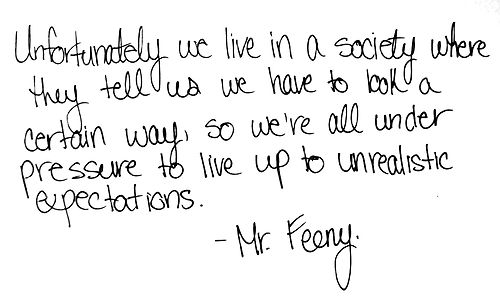 Unfortunately we live in a society where
they tell us we have to look a
certain way, so we're all under
pressure to live up to unrealistic
expectations.
- Mr. Feeny.